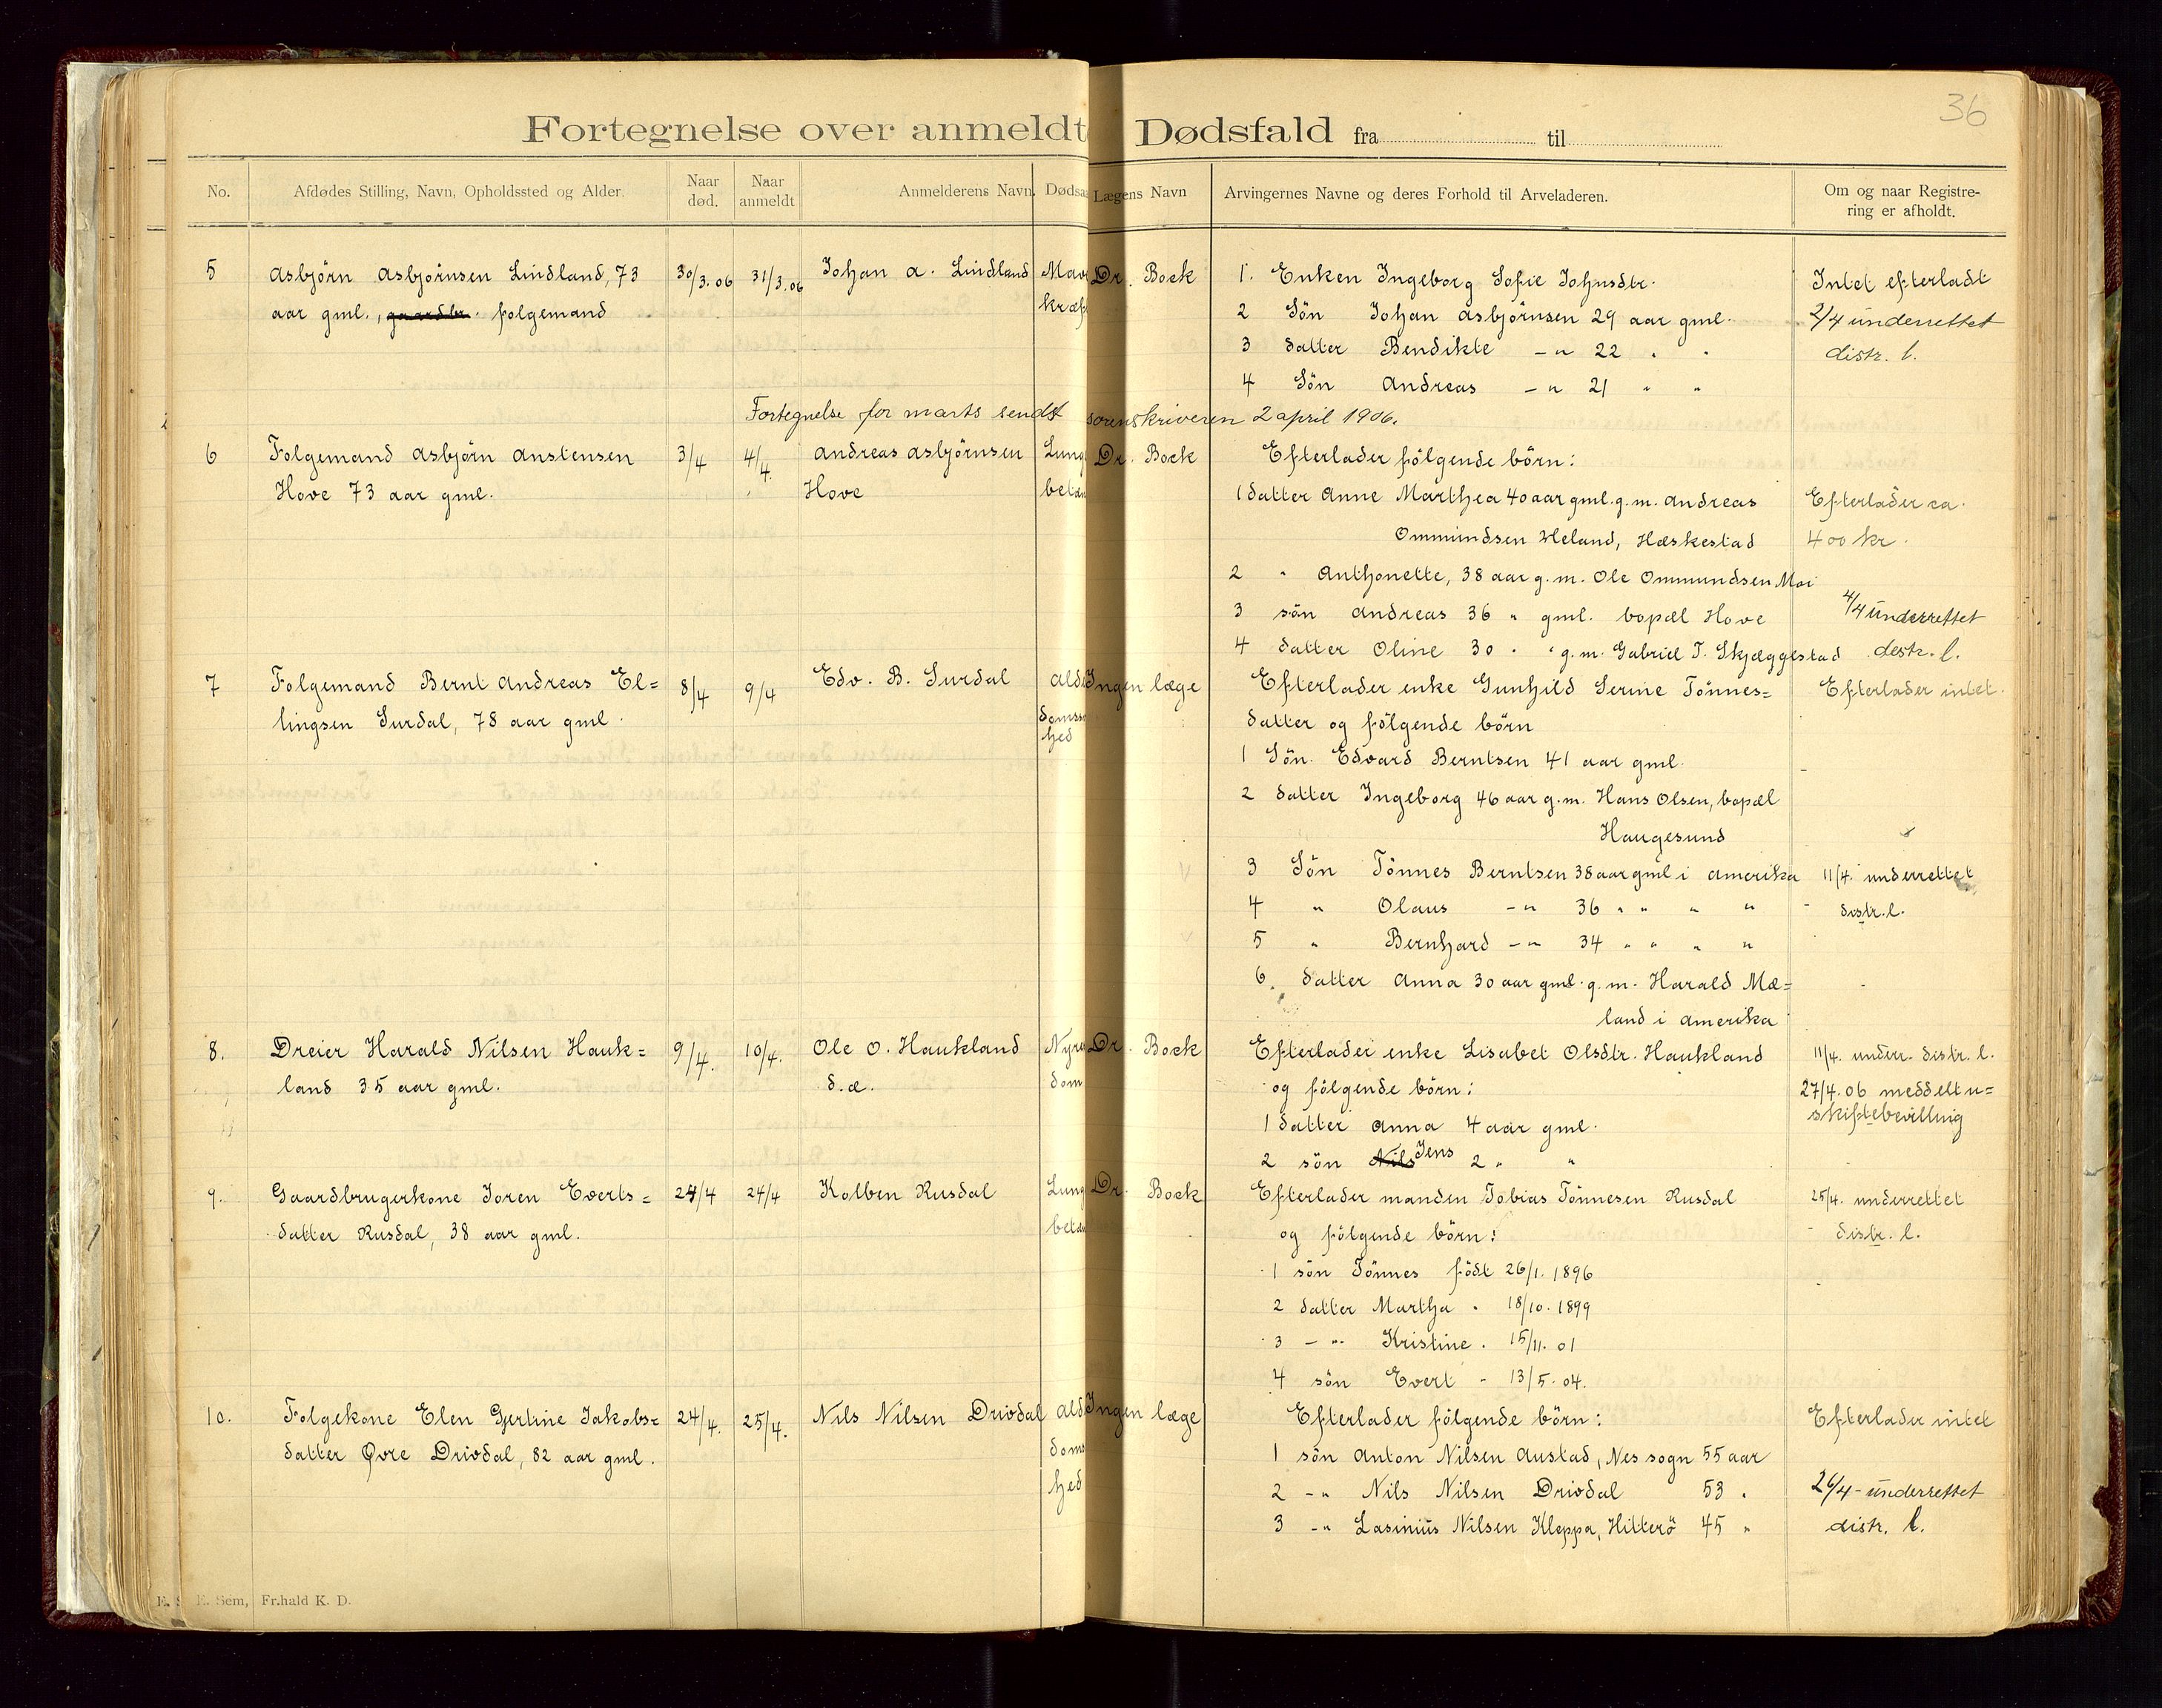 36
Fortegnelse over anmeldt Dødsfald fra til
No. Afdødes Stilling, Navn, Opholdssted og Alder. Naar død. Naar anmeldt Anmelderens Navn. Dødsaa Lægens Navn Arvingernes Navne og deres Forhold til Arveladeren. Om og naar Registrering er afholdt.
5 Asbjörn Asbjörnsen Lindland, 73 30/3.06 31/3.06 Johan A. Lindland Mav Dr. Bock 1. Enken Ingeborg Sofie Johnsdtr. Intet efterladt
aar gml., gaardbr. folgemand kræf 2 Sön Johan Asbjörnsen 29 aar gml. 2/4 underrettet
3 datter Bendikte -"- 22 " " distr. l.
4 Sön Andreas -"- 21 " "
Fortegnelse for marts sendt sorenskriveren 2 april 1906.
6 Folgemand Asbjörn Anstensen 3/4 4/4. Andreas Asbjörnsen Lung Dr. Bock Efterlader fölgende börn:
Hove 73 aar gml. Hove betæn 1 datter Anne Marthea 40 aar gml. g. m. Andreas Efterlader ca.
Ommundsen Heland, Hæskestad 400 kr.
2 " Anthonette, 38 aar g. m. Ole Ommundsen Moi
3 sön Andreas 36 " gml. bopæl Hove 4/4 underrettet
4 datter Oline 30 " " g. m. Gabriel T. Skjæggestad distr. l.
7 Folgemand Bernt Andreas El= 8/4 9/4 Edv. B. Surdal ald Ingen læge Efterlader enke Gunhild Serine Tönnes= Efterlader intet.
lingsen Surdal, 78 aar gml. domssv datter og fölgende börn
hed
1 Sön. Edvard Berntsen 41 aar gml.
2 datter Ingeborg 46 aar g. m. Hans Olsen, bopæl
Haugesund
3 Sön Tönnes Berntsen 38 aar gml i Amerika 11/4. underrettet
4 " Olaus -"- 36 " " " " distr. l.
5 " Bernhard -"- 34 " " " "
6. datter Anna 30 aar gml. g. m. Harald Mæ=
land i Amerika
8. Dreier Harald Nilsen Hauk= 9/4. 10/4. Ole O. Haukland Nyre Dr. Bock Efterlader enke Lisabet Olsdtr. Haukland 11/4. underr. distr. l.
land 35 aar gml. d.æ. dom og fölgende börn: 27/4.06 meddelt u=
1 datter Anna 4 aar gml. skiftebevilling
2 sön Nils Jens 2 " "
9. Gaardbrugerkone Joren Everts= 24/4 24/4 Kolben Rusdal Lung Dr. Bock Efterlader manden Tobias Tönnesen Rusdal 25/4. underrettet
datter Rusdal, 38 aar gml. betæn og fölgende börn: distr. l.
1 sön Tönnes födt 26/1. 1896
2 datter Martha " 18/10. 1899
3 -"- Kristine. 15/11. 01
4 sön Evert - 13/5. 04.
10. Folgekone Elen Gjertine Jakobs= 24/4. 25/4. Nils Nilsen Drivdal ald Ingen læge Efterlader fölgende börn: Efterlader intet
datter Øvre Drivdal, 82 aar gml. doms 1 sön Anton Nilsen Austad, Nes sogn 55 aar
hed 2 -"- Nils Nilsen Drivdal 53 " 26/4 - underrettet
3 -"- Lasinius Nilsen Kleppa, Hitterö 45 " distr. l.
E. Sem, Fr.hald K. D.